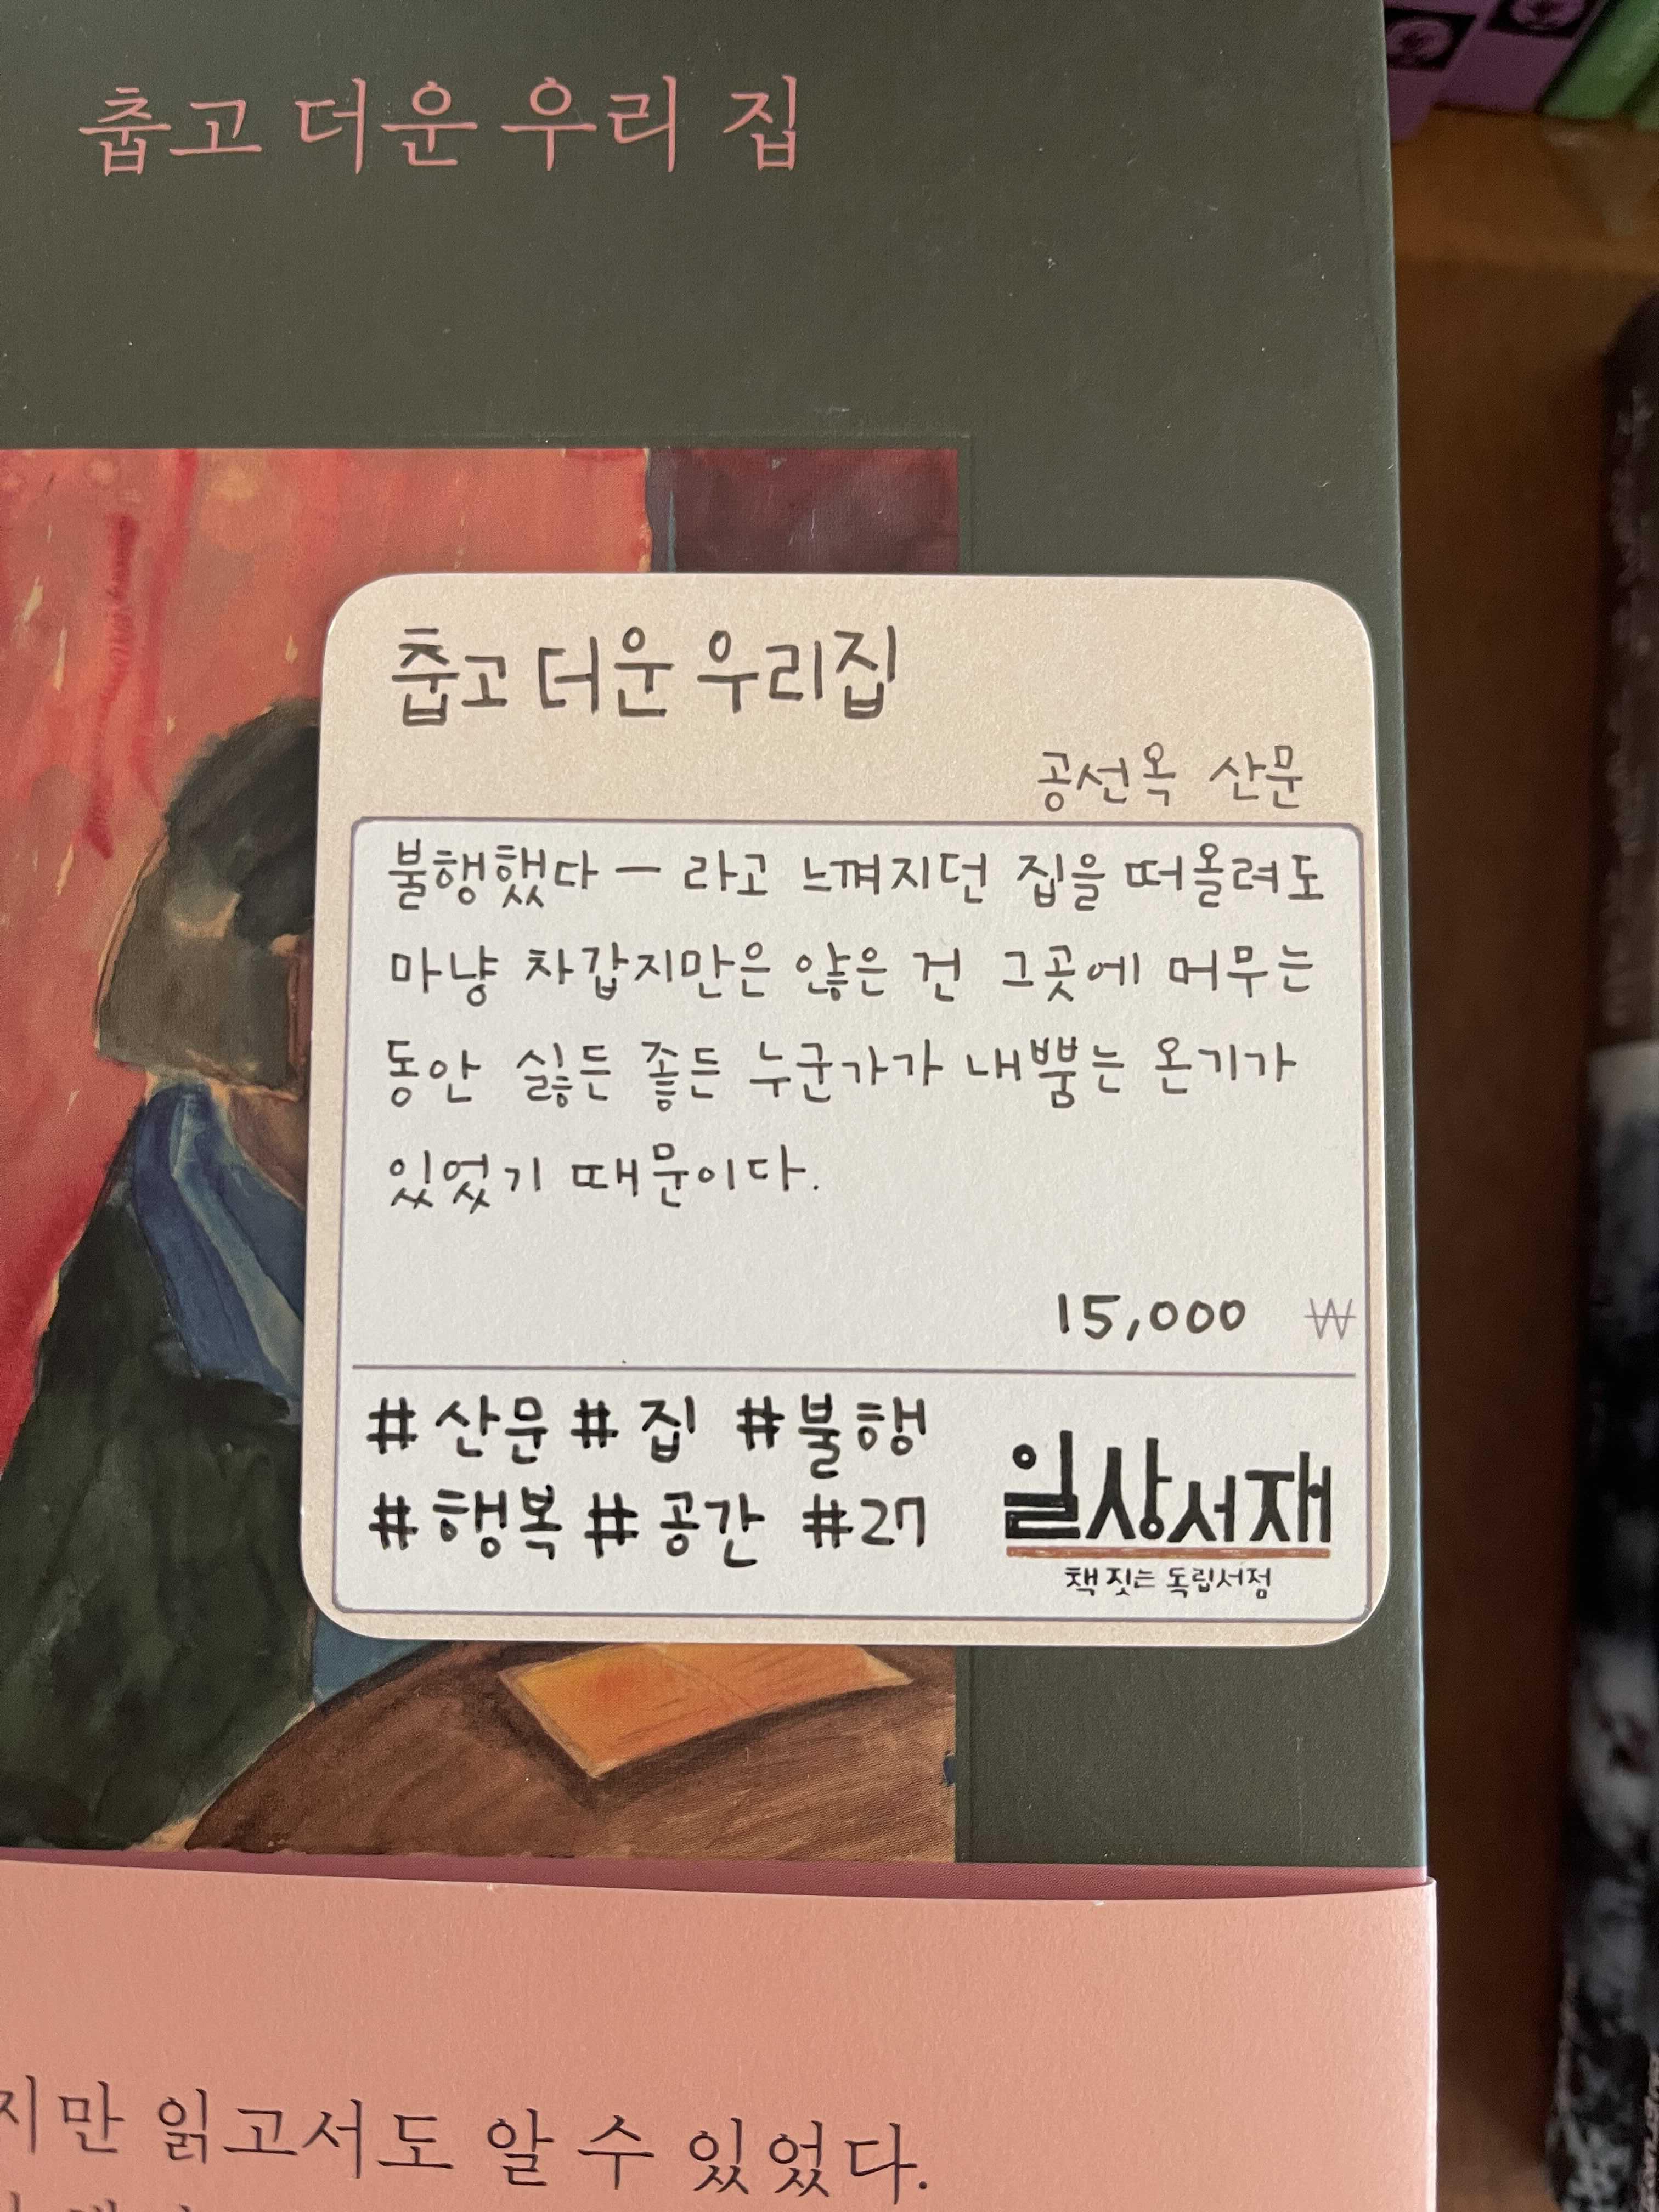 춥고 더운 우리 집
춥고 더운 우리집
공선옥 산문
불행했다 — 라고 느껴지던 집을 떠올려도
마냥 차갑지만은 않은 건 그곳에 머무는
동안 싫든 좋든 누군가가 내뿜는 온기가
있었기 때문이다.
15,000 ₩
# 산문 # 집 # 불행
# 행복 # 공간 #27
일상서재
책 짓는 독립서점
지만 읽고서도 알 수 있었다.